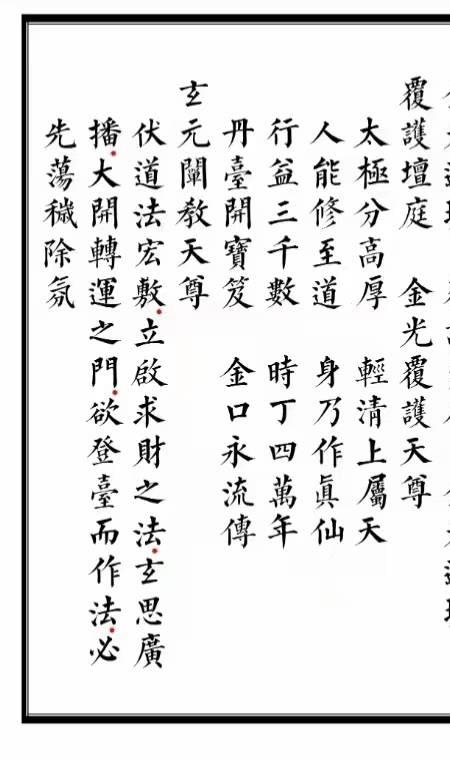 覆護壇庭　金光覆護天尊
太極分高厚　輕清上屬天
人能修至道　身乃作眞仙
行益三千數　時丁四萬年
丹臺開寶笈　金口永流傳
玄元闡敎天尊
伏道法宏敷.立啟求財之法.玄思廣
播.大開轉運之門.欲登臺而作法.必
先蕩穢除氛